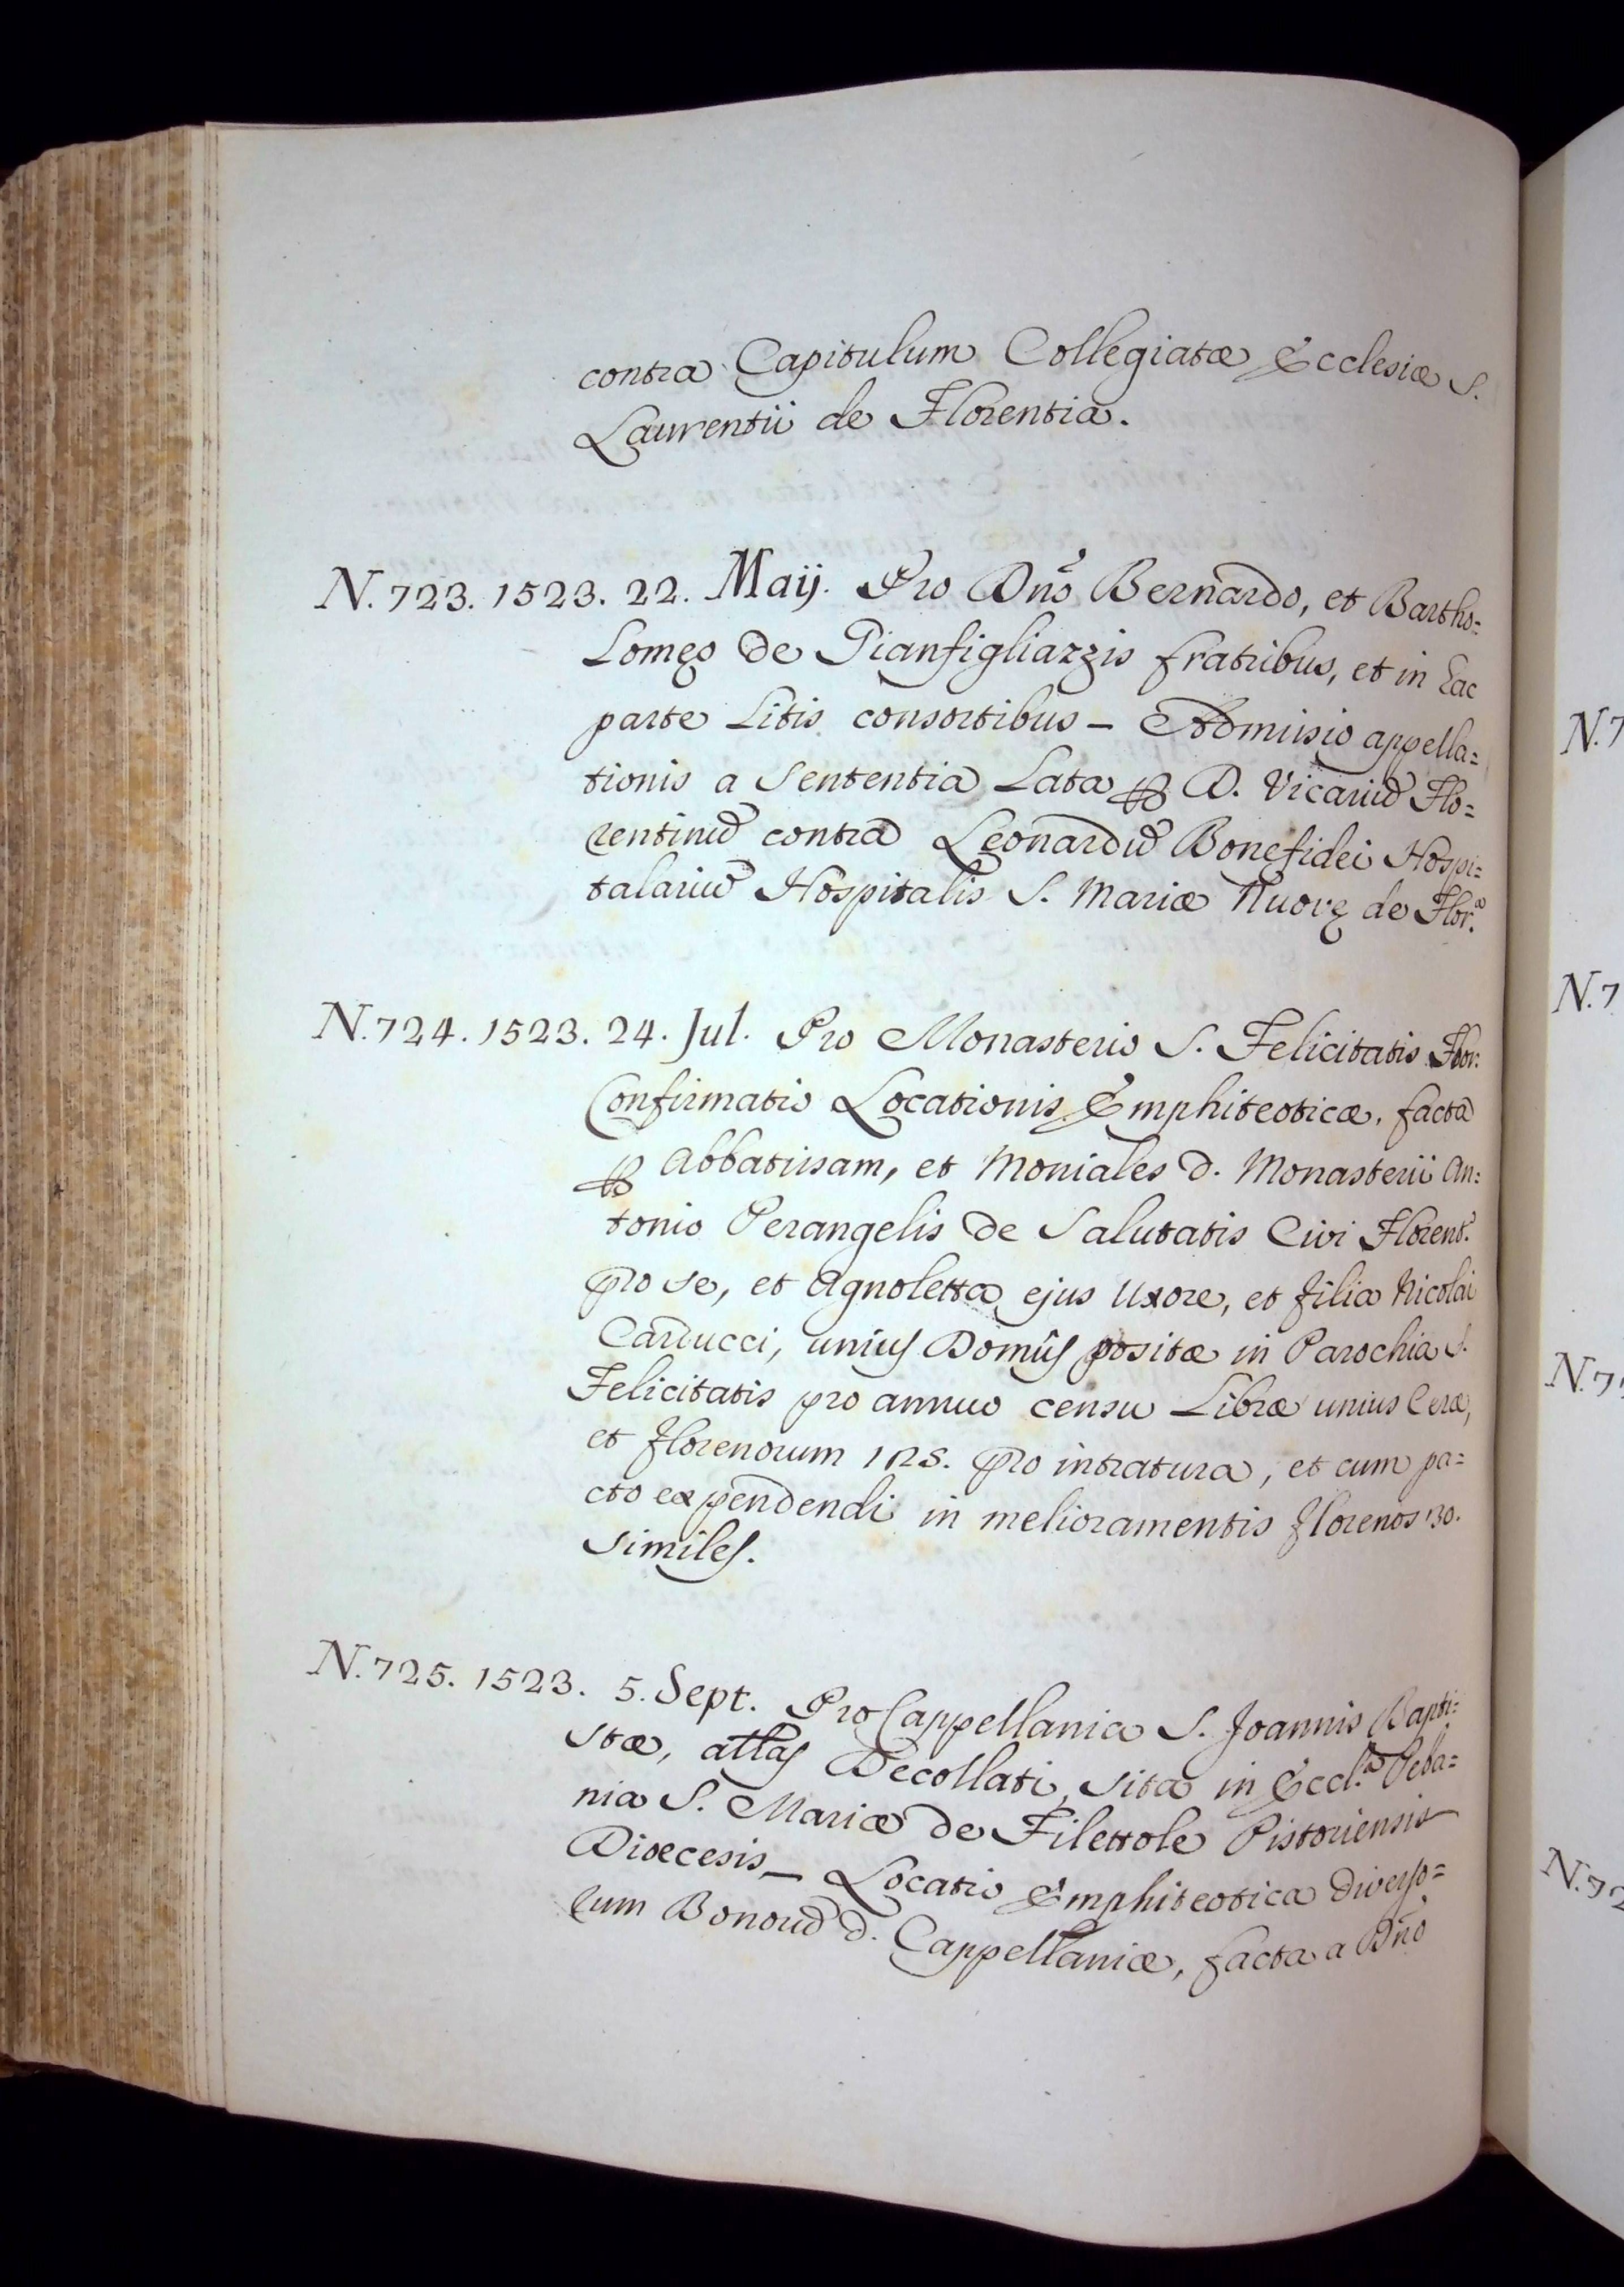 contra Capitulum Collegiatæ Ecclesiæ S.
Laurentii de Florentia.
N. 723. 1523. 22. Maij. Pro Dño Bernardo, et Bartho=
lomęo de Gianfigliazzis fratribus, et in hac
parte Litis consortibus - Admissio appella=
tionis a Sententia Lata ꝑ D. Vicariũ Flo=
rentinũ contra Leonardũ Bonefidei Hospi=
talariũ Hospitalis S. Mariæ Nuovę de Flor.ª
N. 724. 1523. 24. Jul. Pro Monasterio S. Felicitatis Flor:
Confirmatio Locationis Emphiteoticæ, facta
ꝑ Abbatissam, et Moniales d. Monasterii An:
tonio Perangelis de Salutatis Civi Florent.
pro se, et Agnoletta ejus Uxore, et filia Nicolai
Carducci, unius Domûs positæ in Parochia S.
Felicitatis pro annuo censu Libræ unius Ceræ,
et florenorum 125. pro intratura, et cum pa=
cto expendendi in melioramentis florenos 130.
similes.
N. 725. 1523. 5. Sept. Pro Cappellania S. Joannis Bapti=
stæ, attas Decollati, sita in Eccl.ª Pleba=
nia S. Mariæ de Filettole Pistoriensis
Diœcesis - Locatio Emphiteotica diverso=
rum Bonorũ d. Cappellaniæ, facta a Dño
N. 7
N. 7
N. 7
N. 72